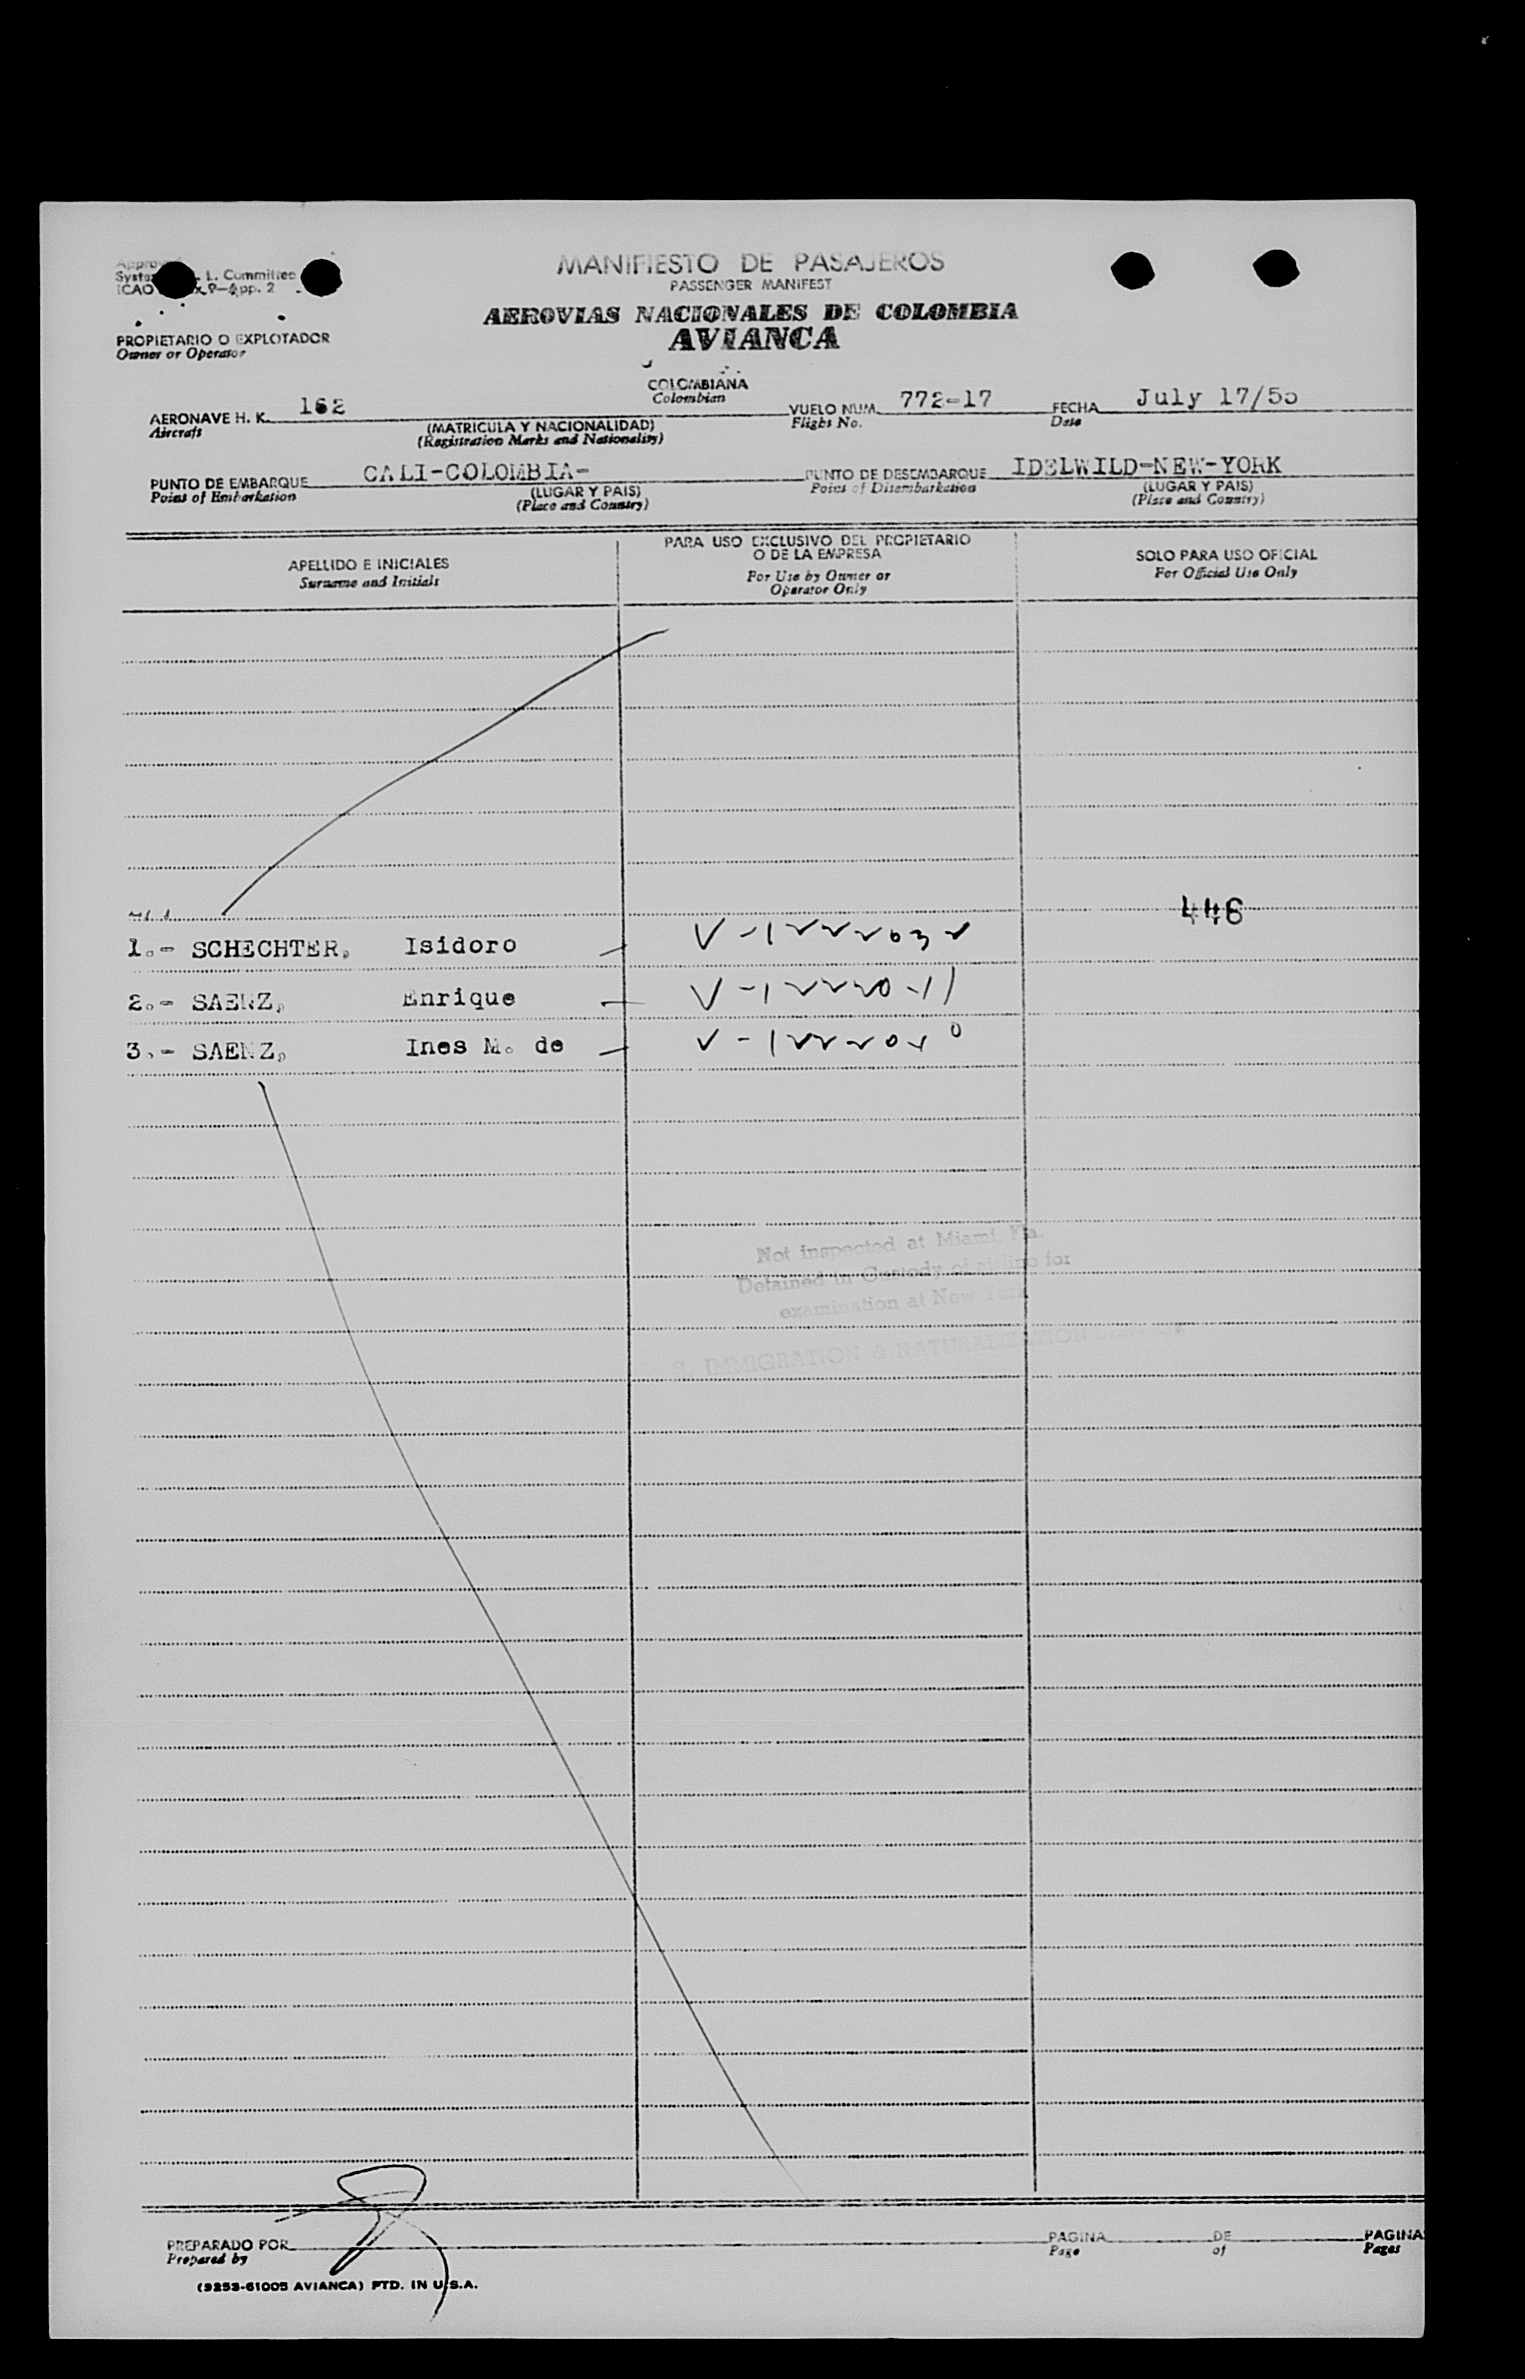 MANIFIESTO DE PASAJEROS
PASSENGER MANIFEST
AEROVIAS NACIONALES DE COLOMBIA
AVIANCA
L. Committee
ICAO P-App. 2
PROPIETARIO O EXPLOTADOR
Owner or Operator
COLOMBIANA
Colombian
AERONAVE H. K. 162
Aircraft
(MATRICULA Y NACIONALIDAD)
(Registration Marks and Nationality)
VUELO NUM. 772-17
Flight No.
FECHA July 17/55
Date
PUNTO DE EMBARQUE CALI-COLOMBIA-
Point of Embarkation
(LUGAR Y PAIS)
(Place and Country)
PUNTO DE DESEMBARQUE IDELWILD-NEW-YORK
Point of Disembarkation
(LUGAR Y PAIS)
(Place and Country)
APELLIDO E INICIALES
Surname and Initials
PARA USO EXCLUSIVO DEL PROPIETARIO
O DE LA EMPRESA
For Use by Owner or
Operator Only
SOLO PARA USO OFICIAL
For Official Use Only
446
1.- SCHECHTER, Isidoro V-1222032
2.- SAENZ, Enrique
3.- SAENZ, Ines M. de
Not inspected at Miami, Fla.
Detained in Custody of airline for
examination at New York
S. IMMIGRATION & NATURALIZATION SERVICE
PREPARADO POR
Prepared by
PAGINA DE PAGINA
Page of Pages
(9253-61005 AVIANCA) PTD. IN U.S.A.